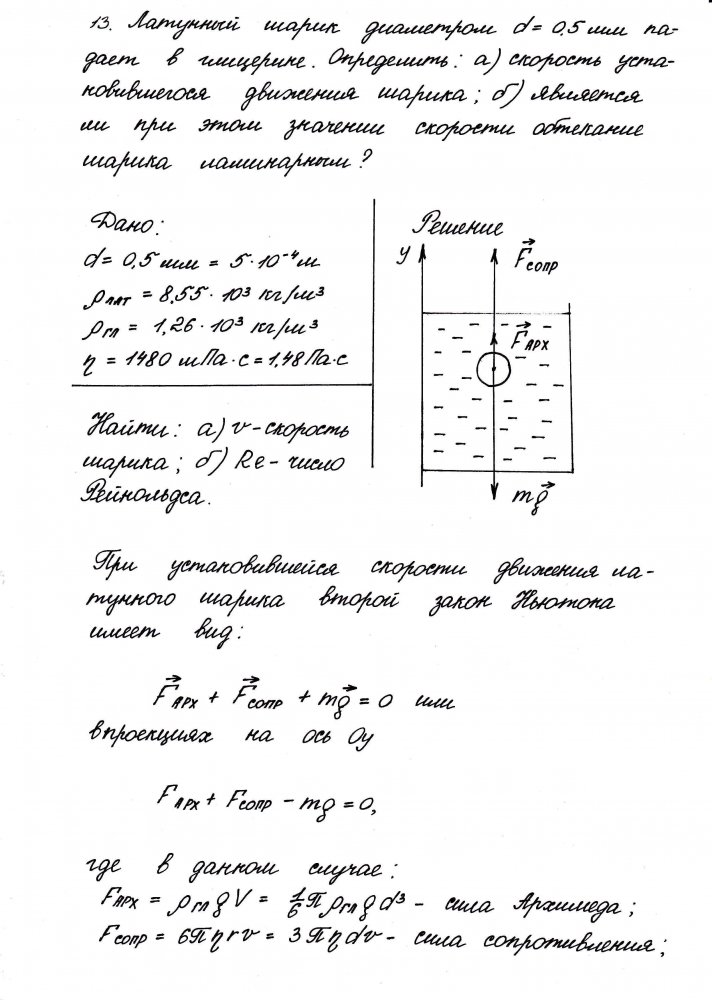 13. Латунный шарик диаметром d = 0,5 мм па-
дает в глицерине. Определить: а) скорость уста-
новившегося движения шарика; б) является
ли при этом значении скорости обтекание
шарика ламинарным?
Дано:
d = 0,5 мм = 5·10⁻⁴ м
ρлат = 8,55·10³ кг/м³
ρгл = 1,26·10³ кг/м³
η = 1480 мПа·с = 1,48 Па·с
Найти: а) v - скорость
шарика; б) Re - число
Рейнольдса.
Решение
y
F⃗сопр
F⃗арх
mg⃗
При установившейся скорости движения ла-
тунного шарика второй закон Ньютона
имеет вид:
F⃗арх + F⃗сопр + mg⃗ = 0 или
в проекциях на ось Oy
Fарх + Fсопр - mg = 0,
где в данном случае:
Fарх = ρгл g V = 1/6 π ρгл g d³ - сила Архимеда;
Fсопр = 6πηrv = 3πηdv - сила сопротивления;